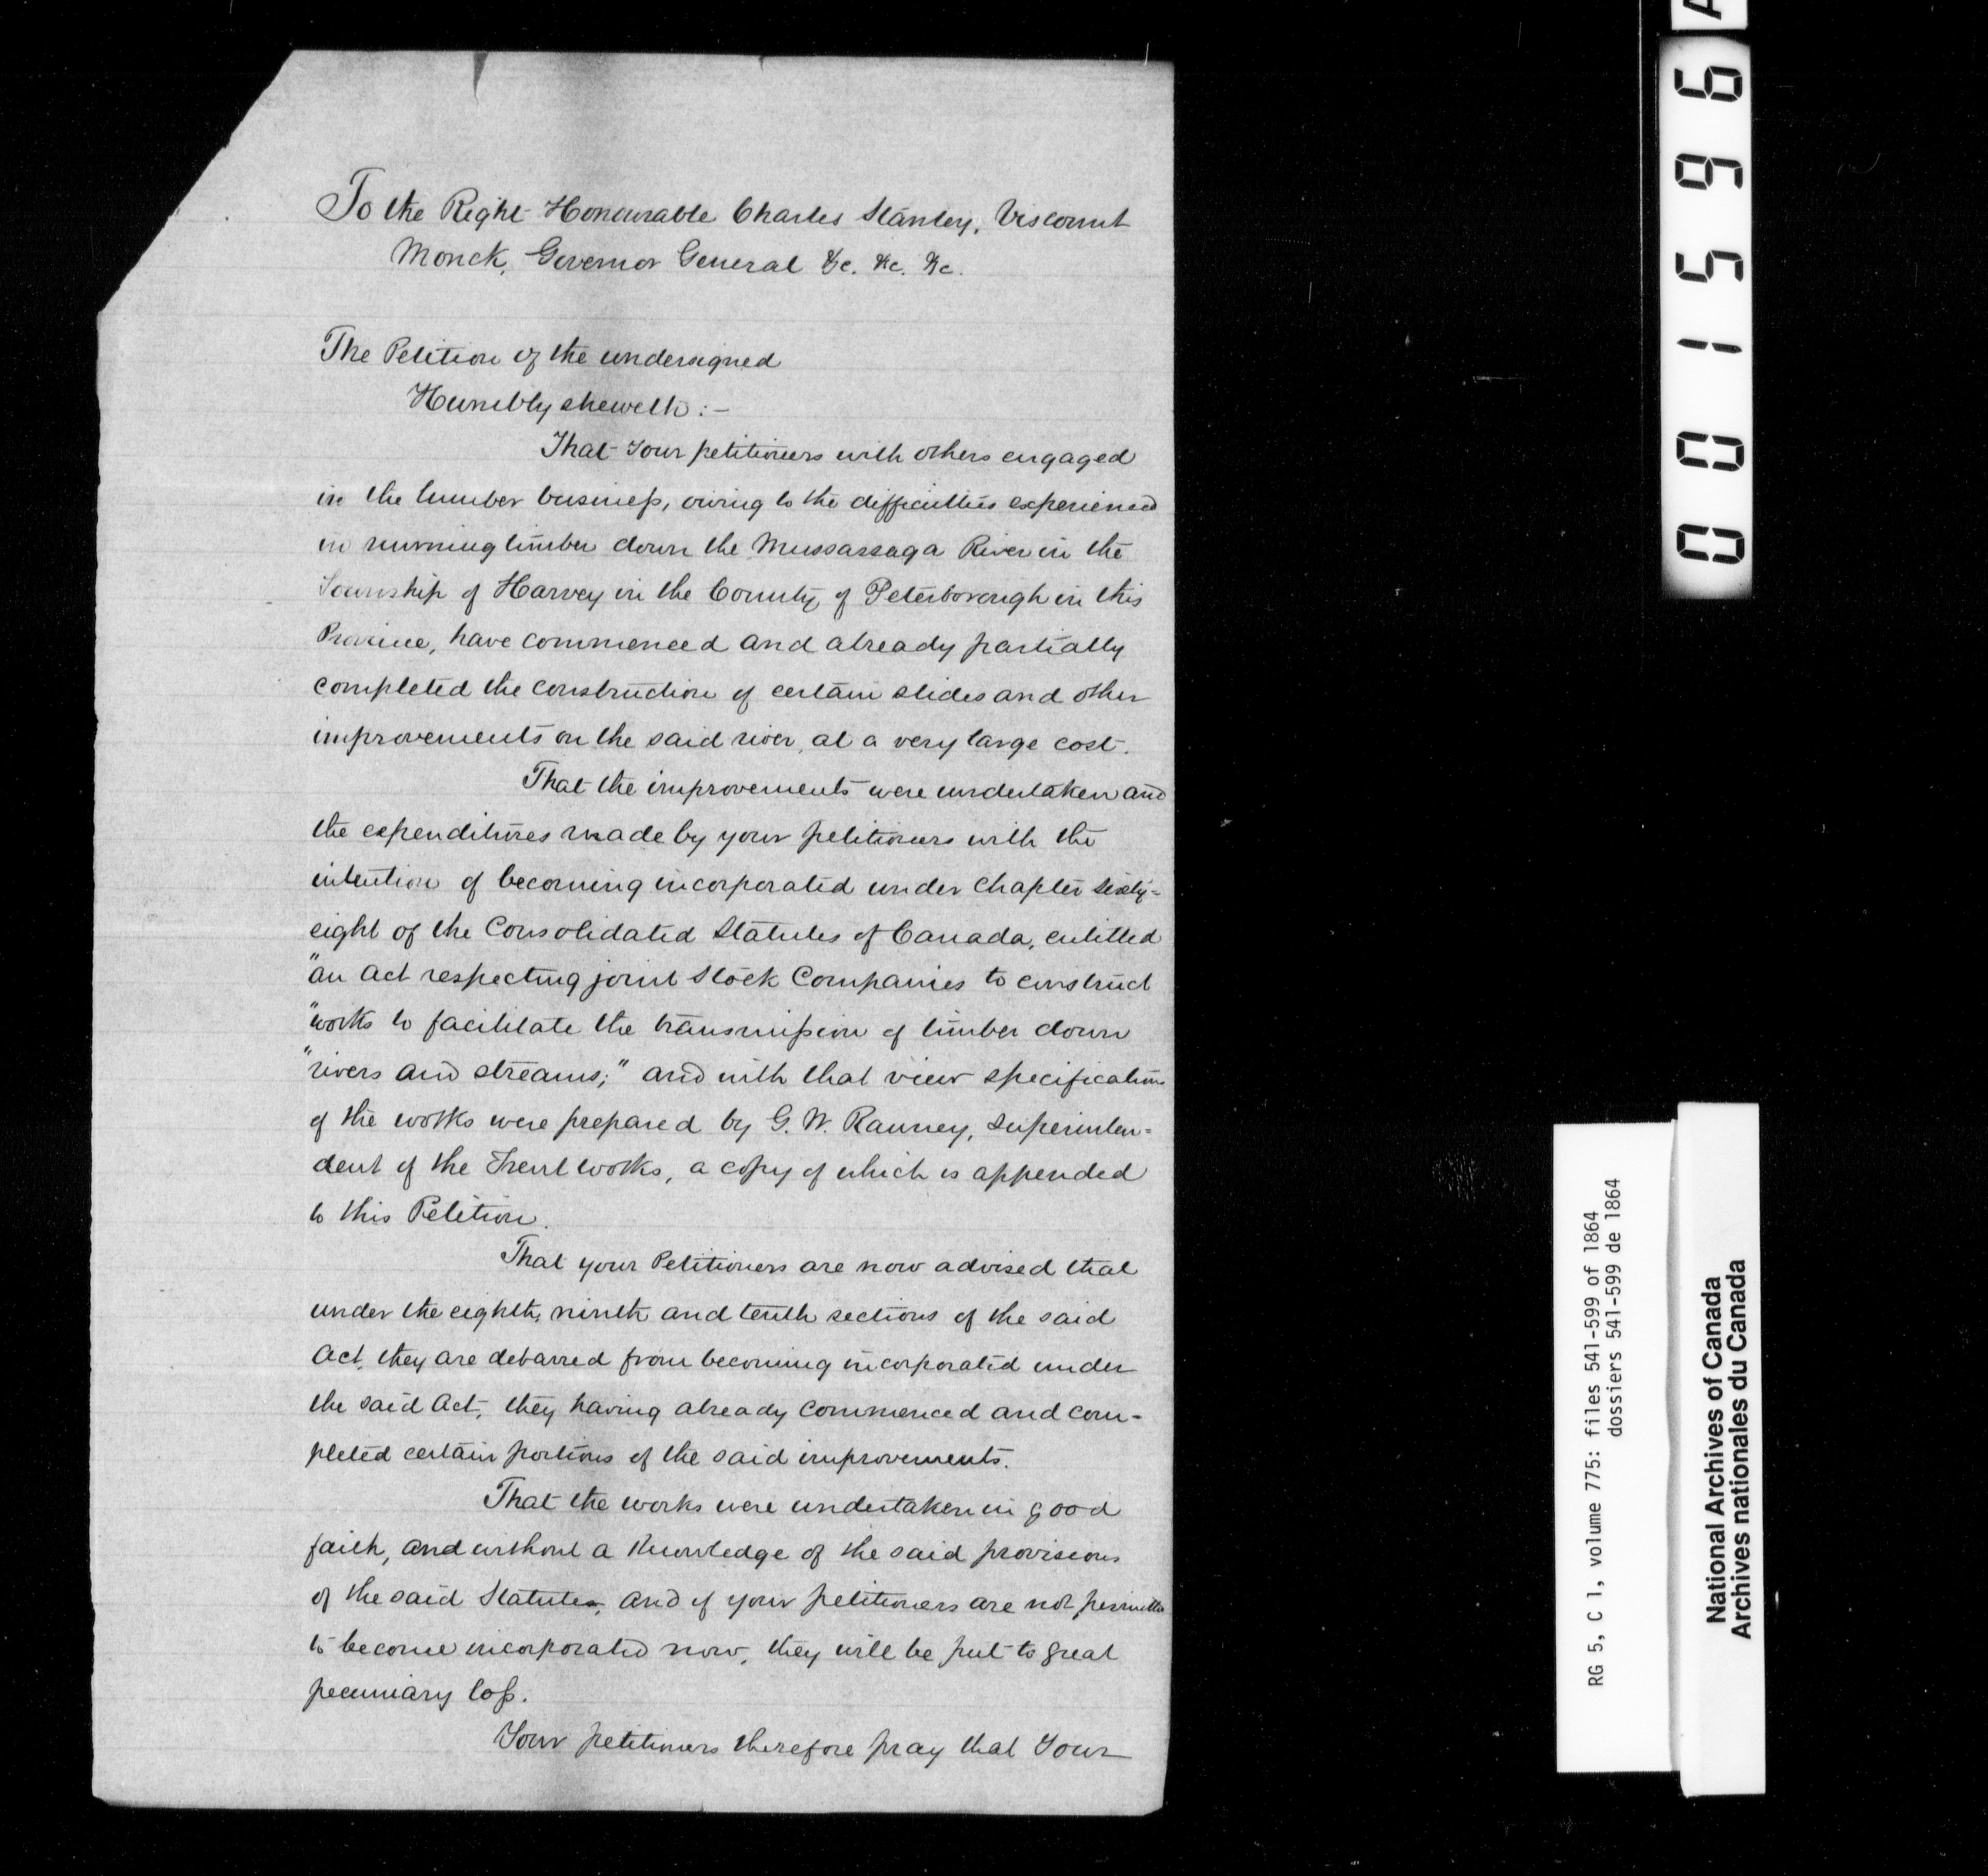 To the Right Honourable Charles Stanley, Viscount
Monck, Governor General &c. &c. &c.
The Petition of the undersigned
Humbly sheweth:-
That your petitioners with others engaged
in the lumber business, owing to the difficulties experienced
in running timber down the Mussassaga River in the
Township of Harvey in the County of Peterborough in this
Province, have commenced and already partially
completed the construction of certain slides and other
improvements on the said river, at a very large cost.
That the improvements were undertaken and
the expenditures made by your petitioners with the
intention of becoming incorporated under Chapter sixty=
eight of the Consolidated Statutes of Canada, entitled
"an Act respecting joint Stock Companies to construct
"works to facilitate the transmission of timber down
"rivers and streams;" and with that view specifications
of the works were prepared by G. W. Ranney, Superinten=
dent of the Trent works, a copy of which is appended
to this Petition.
That your Petitioners are now advised that
under the eighth, ninth and tenth sections of the said
Act, they are debarred from becoming incorporated under
the said Act, they having already commenced and com-
pleted certain portions of the said improvements.
That the works were undertaken in good
faith, and without a knowledge of the said provisions
of the said Statutes, and if your petitioners are not permitted
to become incorporated now, they will be put to great
pecuniary loss.
Your petitioners therefore pray that Your
001596
RG 5, C 1, volume 775: files 541-599 of 1864
dossiers 541-599 de 1864
National Archives of Canada
Archives nationales du Canada